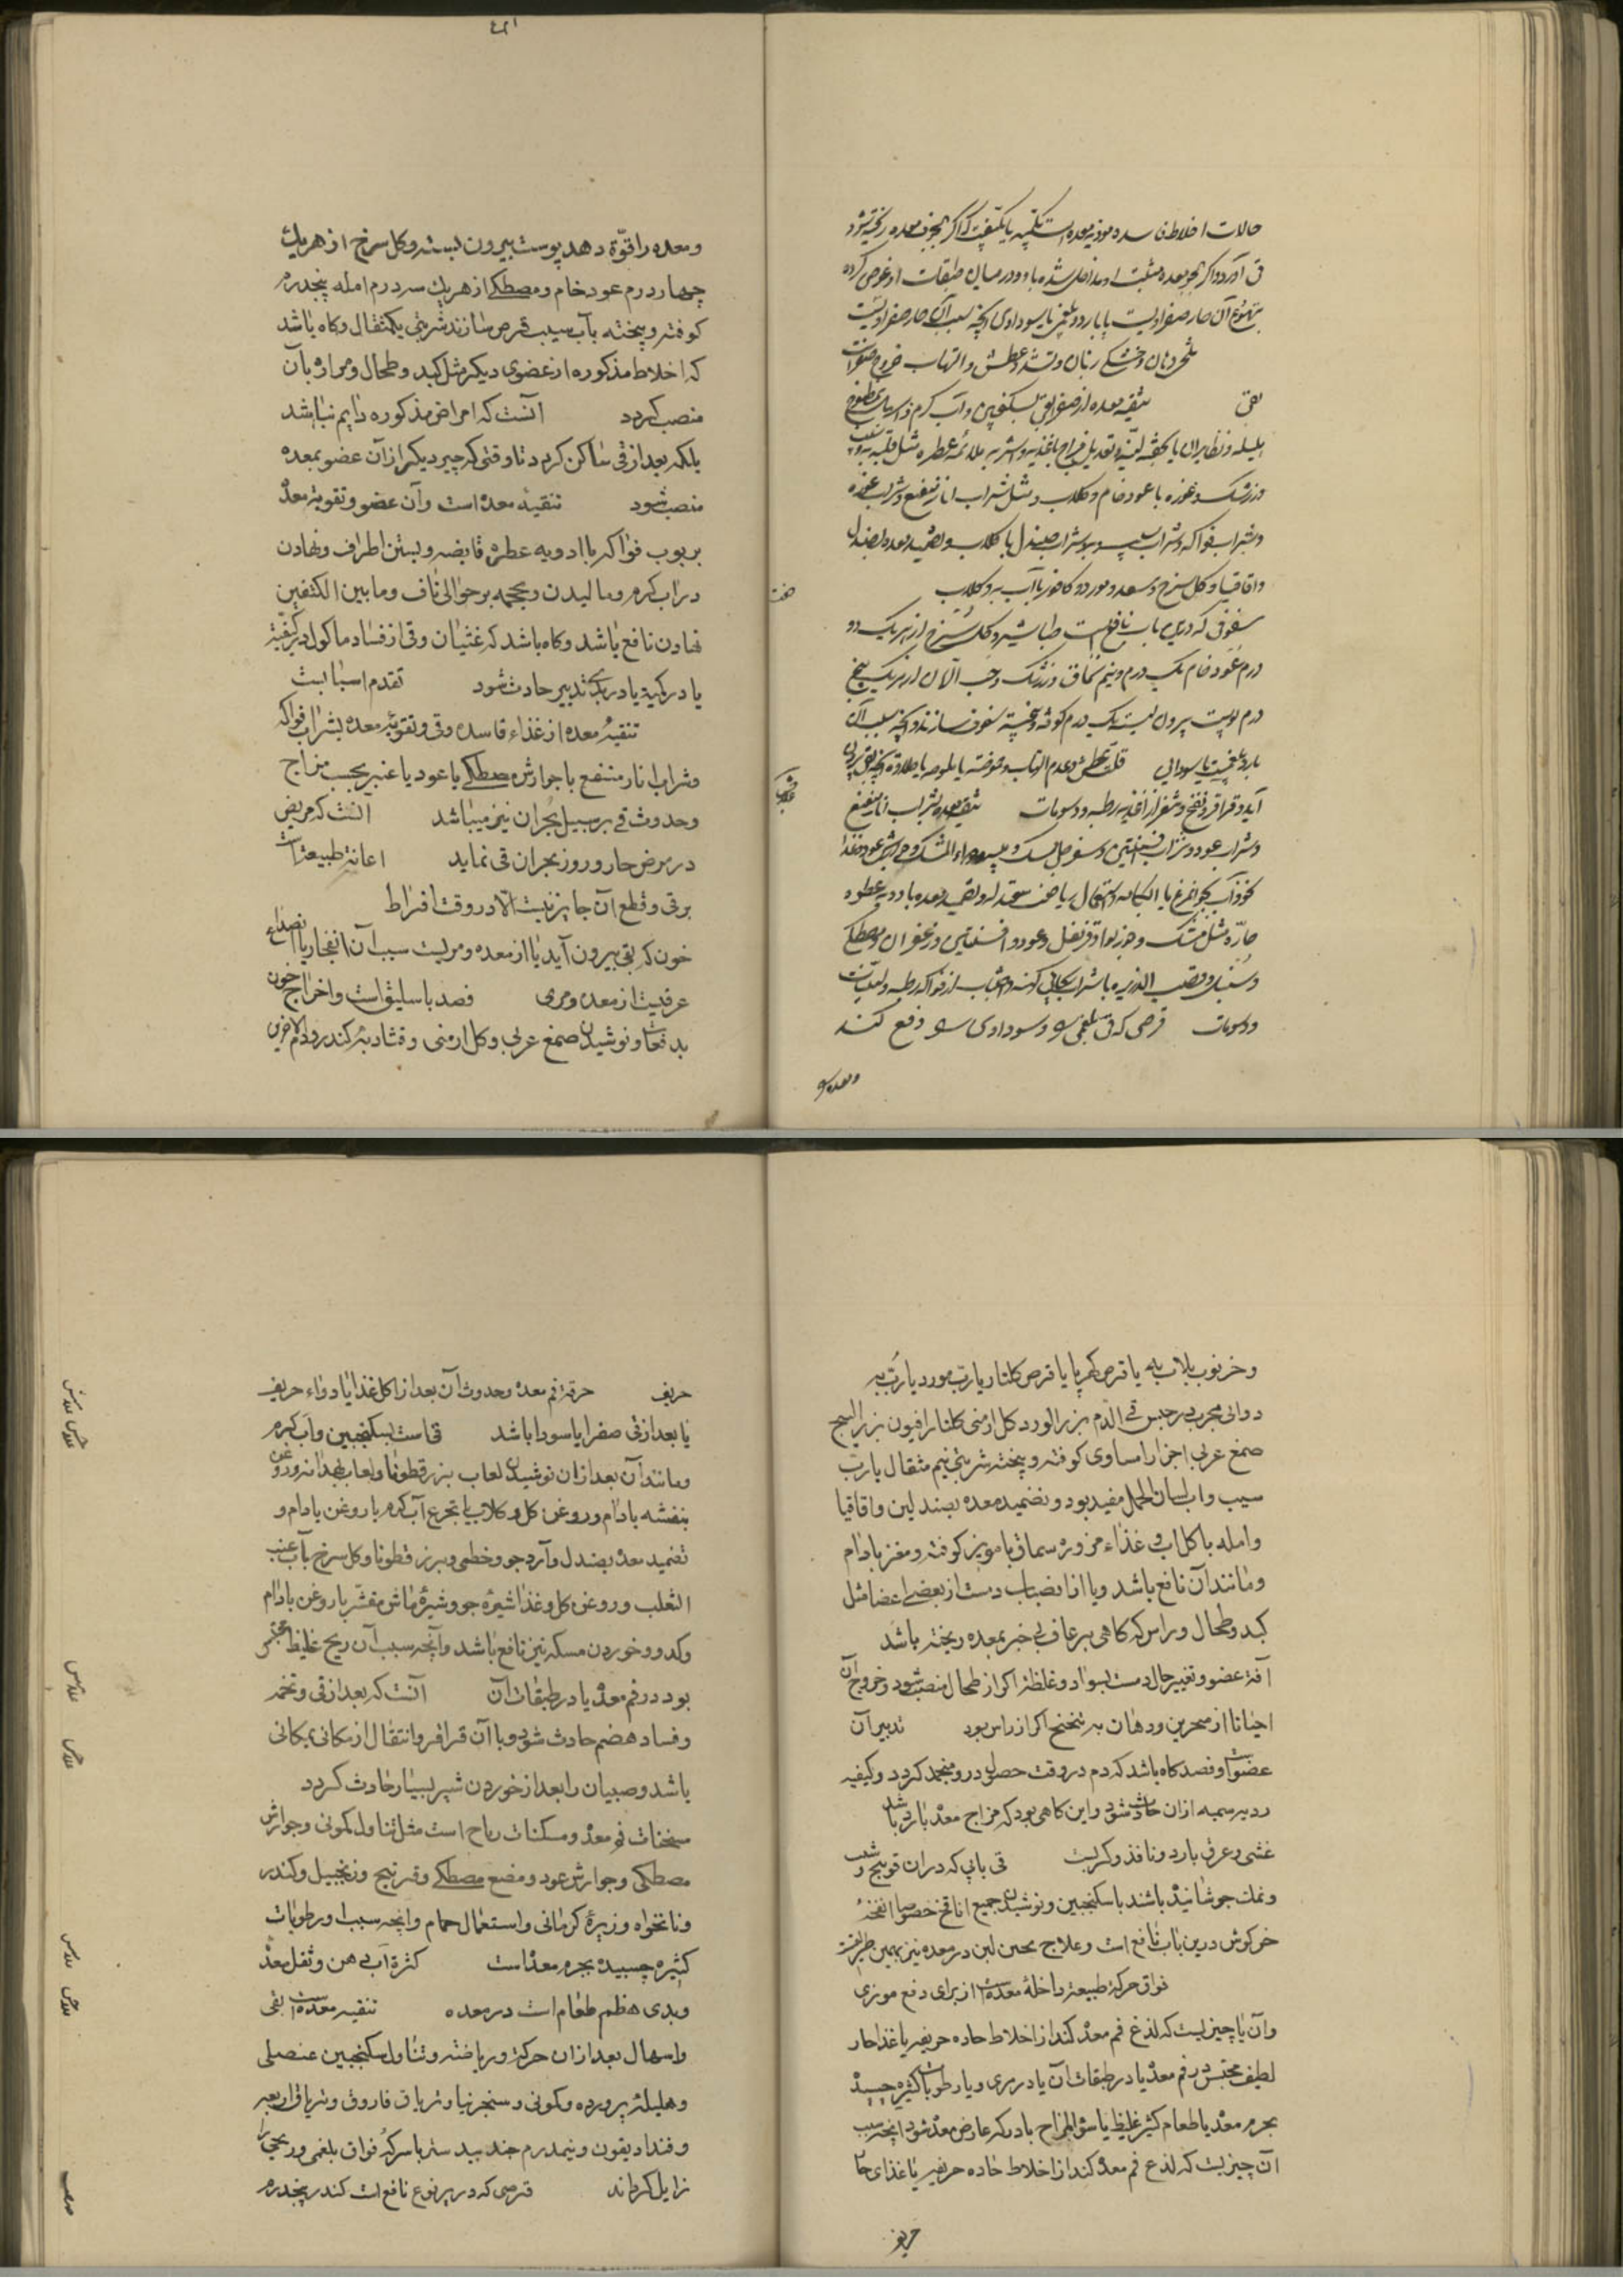 حالات اخلاط فاسده موذیه معده است بکمیّه یا بکیفیّت که اگر بجرف معده ریخته شود
قی آرد و اگر بجرم معده متشبث او متداخل شده باشد و در میان طبقات او غوص کرده
تهوّع آن حار صفراویست یا بارد و بلغمی یا سوداوی آنچه سبب آن حار صفراویست
تلخی دهان و خشکی زبان و تشنگی عطش و التهاب خروج صفراست
بقی تنقیه معده از صفرا بقی بسکنجبین و آب گرم و اسهال بمطبوخ
هلیله و نظایر آن یا بحقنه لیّنه و تعدیل مزاج باغذیه و اشربه ملائمه عطره مثل قلیه به و سیب
وزرشک و غوره با عود خام و گلاب و مثل شراب انار منعنع و شراب غوره
و شراب فواکه و شراب سیب و شراب صندل با گلاب و تضمید معده بصندل
و اقاقیا و گل سرخ و سعد و مورد و کافور با آب به و گلاب صفت
سفوفی که درین باب نافع است طباشیر و گل سرخ از هر یک دو
درم عود خام یک درم و نیم سماق و زرشک و حب الآس از هر یک پنج
درم پوست بیرون پسته یک درم کوفته و بیخته سفوف سازند و آنچه سبب آن
بارد بلغمیست یا سوداوی قلت عطش و عدم التهاب و حموضت یا ملوحه یا حلاوة آنچه بقی برون
آید و قراقر و نفخ و تنفر از اغذیه رطبه و دسومات تنقیه معده بشراب انار منعنع
و شراب عود و شراب افسنتین و سفرجل ممسک و میبه و دواء المسک و جوارش عود و غذا
نخودآب بجواخرغ با اشتعال ریاضت معتدله و تضمید معده بادویه عطره
حارّه مثل مشک و جوزبوا و قرنفل و عود و افسنتین و زعفران و مصطکی
و سنبل و قصب الذریره با شراب ریحانی کهنه و اجتناب از فواکه رطبه و لبنیات
و دسومات قرصی که قی بلغمی و سوداوی دفع کند
و معده را
و معده را قوّة دهد پوست بیرون پسته و کل سرخ از هریک
چهار درم عود خام و مصطکی از هریک سه درم امله پنجدرم
کوفته و بیخته بآب سیب قرص سازند شربتی یکمثقال و کاه باشد
که اخلاط مذکوره از عضوی دیکر مثل کبد و طحال و مراره بآن
منصب کردد آنست که امراض مذکوره دایم نباشد
بلکه بعد از قی ساکن کردد تا وقتی که چیز دیکر از آن عضو بمعده
منصب شود تنقیهٔ معده است وآن عضو و تقویة معدّ
بربوب فواکه باادویه عطره قابضه و بستن اطراف و نهادن
در اب کرم و مالیدن و محجمه بر حوالی ناف و مابین الکتفین
نهادن نافع باشد و کاه باشد که غثیان و قی از فساد ماکول در کیفیّة
یا در کمیّة یا در بدی تدبیر حادث شود تقدم اسبابست
تنقیهٔ معده از غذاء فاسده وقی و تقویهٔ معده بشراب فواکه
و شراب انار منعنع با جوارش مصطکی یا عود یا عنبر بحسب مزاج
وحدوث قی بر سبیل بحران نیز میباشد آنست که مریض
در مرض حار و روز بحران قی نماید اعانة طبیعة است
بر قی و قطع آن جایز نیست الّا در وقت افراط
خون که بقی بیرون آید یا از معده و مریست سبب آن انفجار یا انصداع
عرقیست از معده و مری فصد باسلیق است و اخراج خون
بدفعات و نوشیدن صمغ عربی و کل ارمنی و نشا و بذر کندر و دم الاخوین
و خرنوب بلاب به یا قرص کهربا یا قرص کلنار یا رب مورد یا رُبّ به
دوائی مجرب در حبس قی الدّم بزر الورد کل ارمنی کلنار افیون بزر البنج
صمغ عربی اجزا را مساوی کوفته و بیخته شربتی نیم مثقال با رب
سیب و اب لسان الحمل مفید بود و تضمید معده بصندلین و اقاقیا
و امله با کلاب و غذاء مزوره سماق با مویز کوفته و مغز بادام
و مانند آن نافع باشد و یا از انصباب دمست از بعضی اعضا مثل
کبد و طحال و راس که کاهی برعاف بی خبر بمعده ریخته باشد
آفة عضو و تغییر حال دمست بسواد و غلظة اکر از طحال منصب شود و خروج آن
احیانا از منخرین و دهان به تنخنح اکر از راس بود تدبیر آن
عضو است و فصد کاه باشد که دم در وقت حصول درو منجمد کردد و کیفیه
ردیه سمیه ازان حادث شود و این کاهی بود که مزاج معدّ بارد باشد
غشی و عرق بارد و نافض و کربست قی بابی که دران فوتنج و شبت
و نمک جوشانیده باشند با سکنجبین و نوشیدن جمیع انافح خصوصا انفحهٔ
خرکوش درین باب نافع است و علاج تجبن لبن در معده نیز بهمین طریقست
فواق حرکهٔ طبیعة داخلهٔ معدّست از برای دفع موذی
وآن یا چیزیست که لذع فم معدّ کند از اخلاط حاده حریفه یا غذا حار
لطیف محتبس در فم معدّ یا در طبقات آن یا در مری و یا رطوبات کثیره چسبیده
بجرم معدّ یا طعام کثیر غلیظ یا سوء المزاج بارد که عارض معدّ شود آنچه سبب
آن چیزیست که لذع فم معدّ کند از اخلاط حاده حریفه یا غذای حا
حریف
حریف حرقة فم معدهٔ وحدوث آن بعد از اکل غذا یا دواء حریف
یا بعد از قی صفرا یا سودا باشد قی است بسکنجبین و آب کرم
و مانند آن بعد ازان نوشیدن لعاب بزر قطونا و لعاب بهدانه و روغن
بنفشه بادام و روغن کل و کلاب یا تجرع آب کرم با روغن بادام و
تضمید معدّ بصندل و آرد جو و خطمی و بزر قطونا و کل سرخ بآب عنب
الثعلب و روغن کل و غذا شیرهٔ جو و شیرهٔ ماش مقشّر با روغن بادام
و کدو و خوردن مسکه نیز نافع باشد و آنچه سبب آن ریح غلیظ محتبس
بود در فم معدّ یا در طبقات آن آنست که بعد از قی و تخمه
و فساد هضم حادث شود و با آن قراقر و انتقال از مکانی بمکانی
باشد و صبیان را بعد از خوردن شیر بسیار حادث کردد
مسخنات فم معدّ و مسکنات ریاح است مثل تناول کمونی و جوارش
مصطکی و جوارش عود و مضغ مصطکی و قرنبج و زنجبیل و کندر
و نانخواه و زیرهٔ کرمانی و استعمال حمام و آنچه سبب او رطوبات
کثیره چسبیده بجرم معدّ است کثرة آب دهن و ثقل معدّ
و بدی هظم طعام است در معده تنقیه معدّست بقی
و اسهال بعد ازان حرکة و ریاضة و تناول سکنجبین عنصلی
و هلیلهٔ پرورده و کمونی و سنجرنیا و تریاق فاروق و تریاق اربعه
و فندادیقون و نیمدرم جند بیدستر با سرکه فواق بلغمی و ریحی را
زایل کرداند قرصی که در پر نوع نافع است کندر پنجدرم